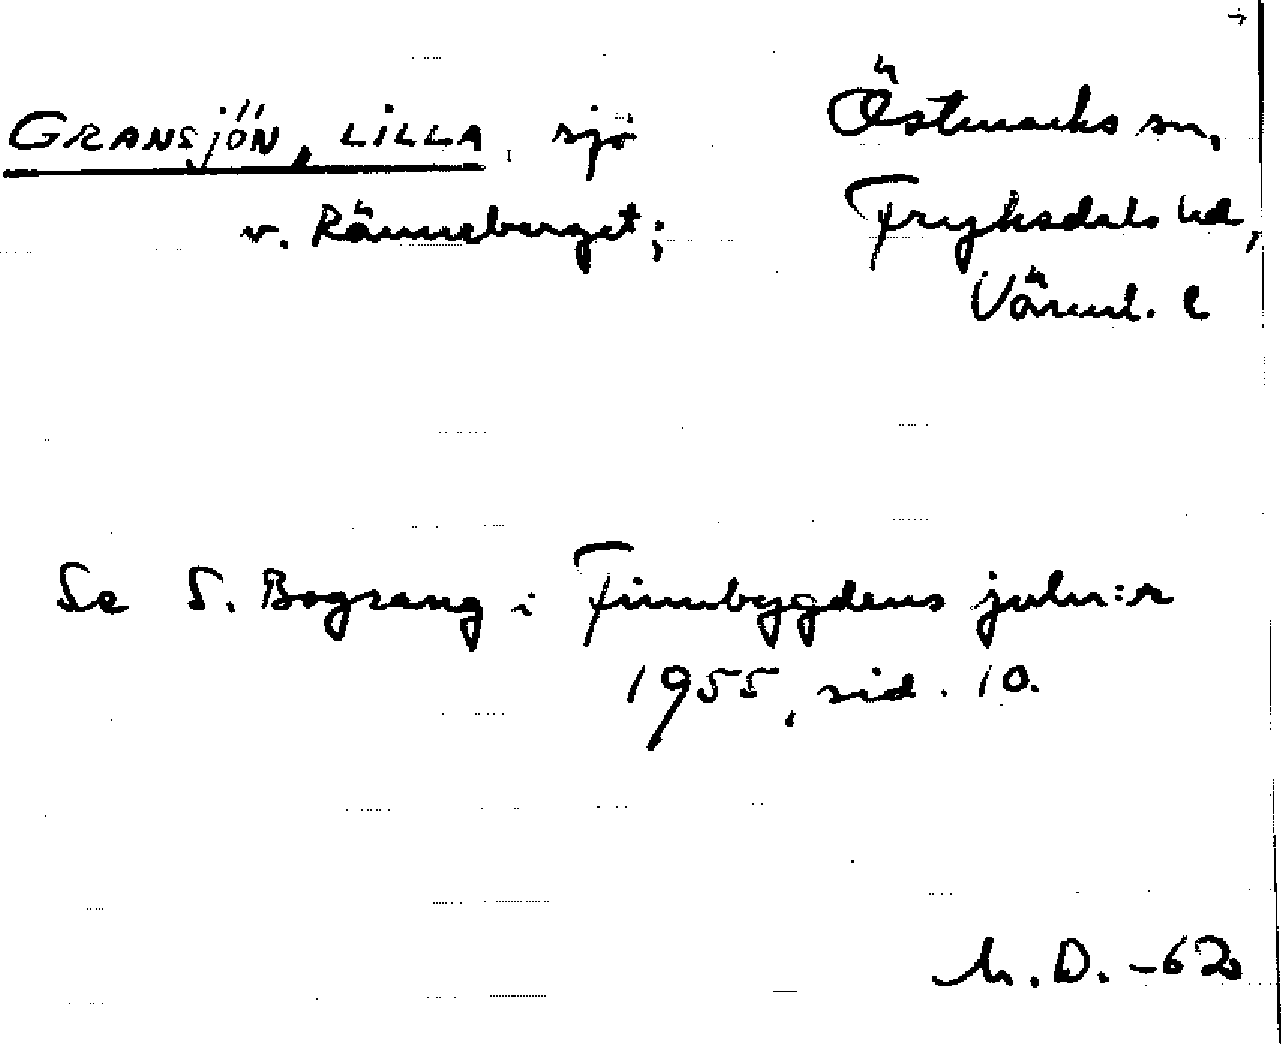 GRANSJÖN, LILLA, sjö
v. Ränneberget;
Östmarks sn,
Fryksdals hd,
Värml. l
Se S. Bograng i Finnbygdens juln:r
1955, sid. 10.
M.D. -62